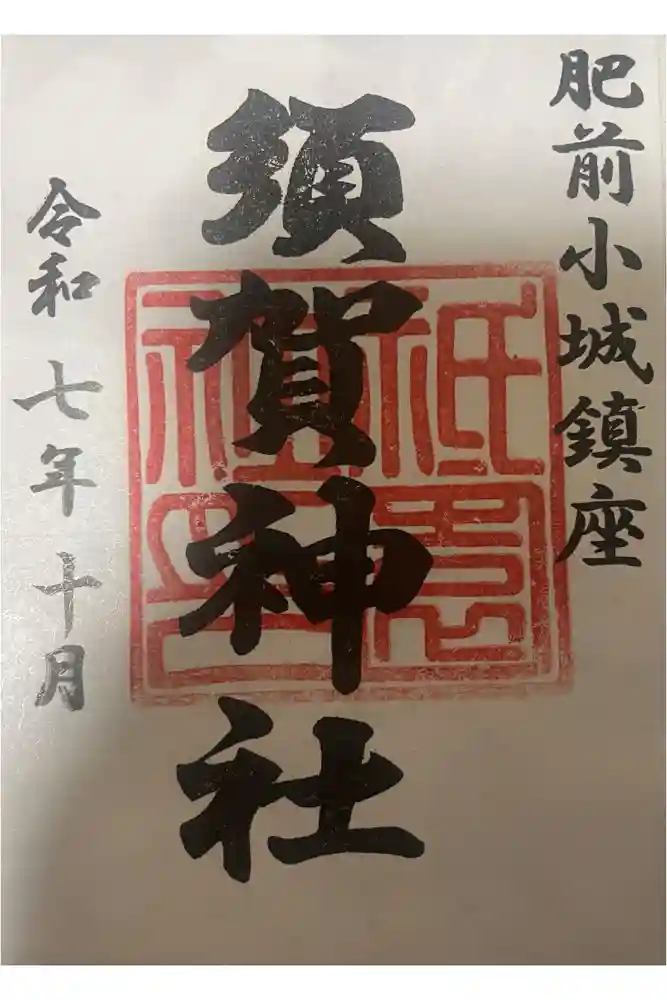 肥前小城鎮座
須賀神社
令和七年十月
祇園社印